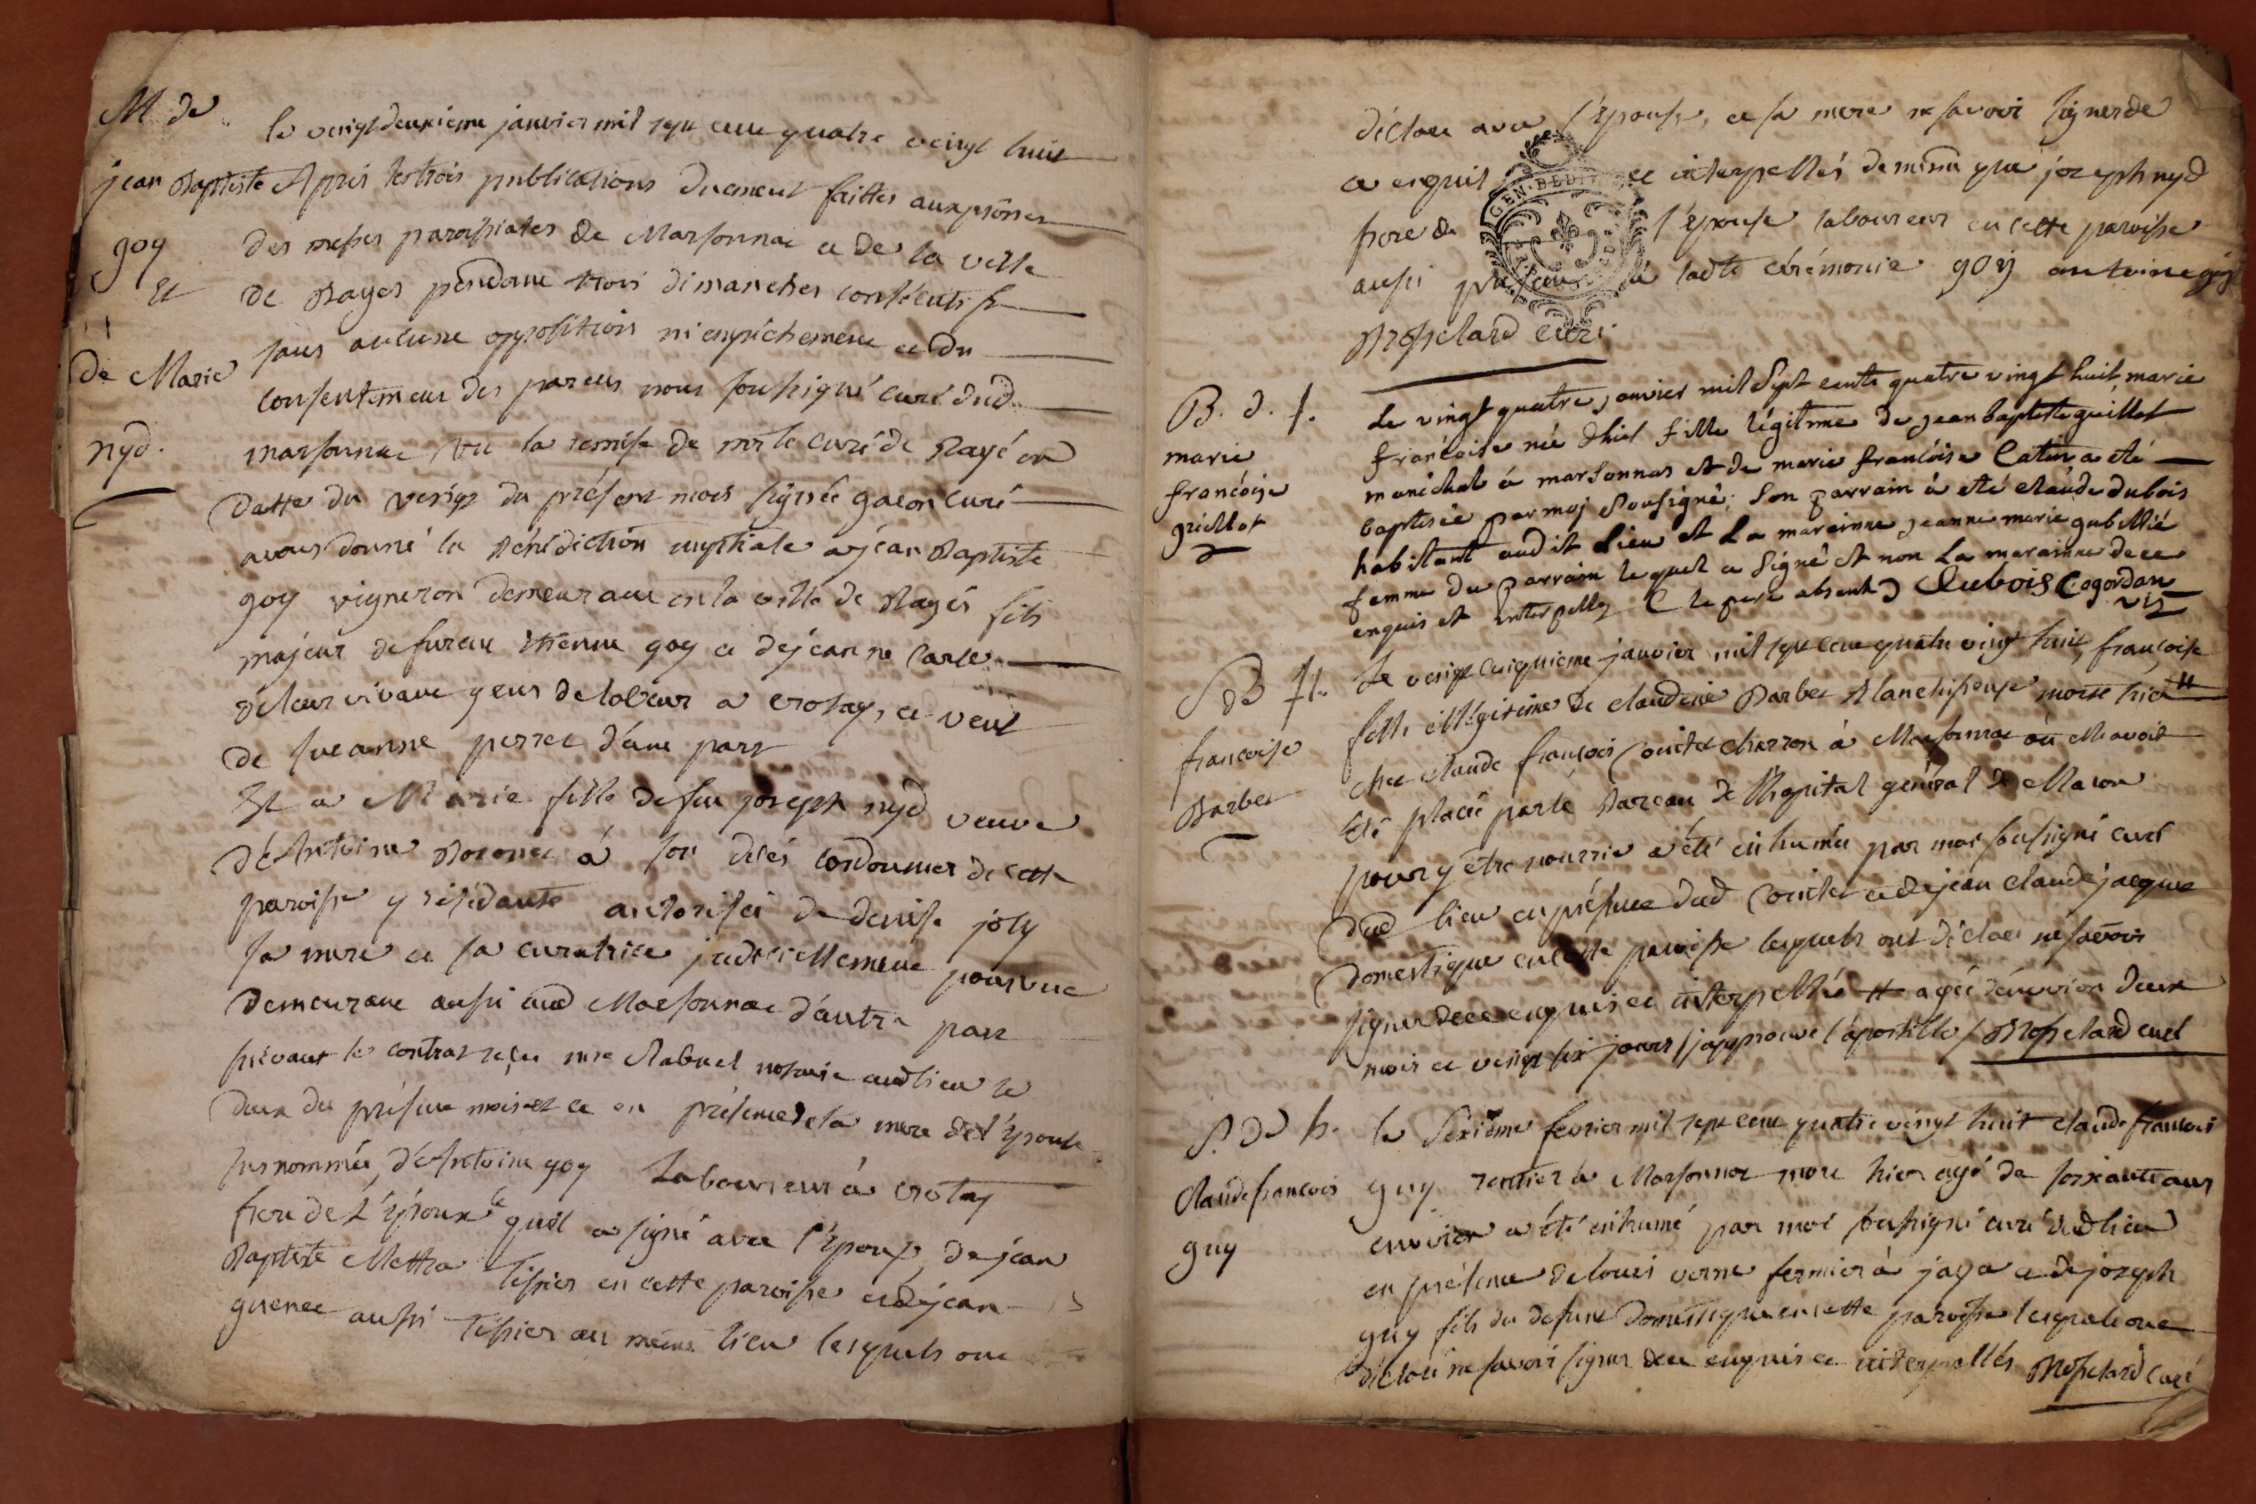 M. de
jean Baptiste
goy
Et
de Marie
nyd.
le vingt deuxieme janvier mil sept cent quatre vingt huit
Après les trois publications duement faittes aux prônes
des messes paroissiales de Marsonnac et de la ville
de Bagés pendant trois dimanches consécutifs
sans aucune opposition ni empêchement et du
consentement des parens nous soussigné curé dud.
marsonnac vu la remise de mr le curé de Bagé en
datte du vingt du présent mois signée gacon curé
avons donné la bénédiction nuptiale a jean Baptiste
goy vigneron demeurant en la ville de Bagés fils
majeur de furent Etienne goy et de jeanne Carle
de leur vivant gens de labeur a crotay, et veuf
de Sueanne perret d'une part
Et a Marie fille de feu joseph nyd veuve
d'Antoine à son décés cordonnier de cette
paroisse y résidante autorisée de denise joly
sa mere et sa curatrice judiciellement pourvue
demeurant aussi aud Marsonnac d'autre part
suivant le contrat reçu mre Rabuel notaire aud lieu le
deux du présent mois et ce en présence de la mere de l'épouse
susnommée, d'Antoine goy Laboureur à crotay
frere de l'époux qui a signé avec l'époux, de jean
Baptiste Mettra tissier en cette paroisse et de jean
guenee aussi tissier au même lieu lesquels ont
déclaré avec l'épouse, et sa mere ne savoir signer de
ce enquis et interpellés de même que joseph nyd
frere de l'épouse laboureur en cette paroisse
aussi présent à ladte cérémonie goy antoine goy
Brosselard curé.
B. d. f.
marie
françoise
guillot
Le vingt quatre janvier mil Sept cents quatre vingt huit, marie
françoise née d'hier fille légitime de jean baptiste guillot
maréchal à marsonnas et de marie françoise Catin a été
baptisée par moj Sousigné; Son parrain à été claude dubois
habitant audit Lieu et La maraine jeanne marie gubillié
femme du parrain lequel a Signé et non La maraine de ce
enquis et interpelly (le pere absent) Dubois Cogordan
vic
S de f.
françoise
Barbet
Le vingt cinquieme janvier mil sept cent quatre vingt huit, françoise
fille illégitime de claudine Barbet Blanchisseuse morte hier #
chez claude françois Cointet charron à Marsonnac où elle avoit
été placée par le Bureau de l'hopital général de Macon
pour y être nourrie a été inhumée par moi soussigné curé
dud lieu en présence dud Cointet et de jean claude jacquet
domestique en cette paroisse lesquels ont déclaré ne savoir
signer de ce enquis et interpellés # agée d'environ deux
mois et vingt six jours / j'approuve l'apostille / Brosselard curé
S. de h.
Claude françois
guy
le Sixième fevrier mil sept cent quatre vingt huit claude françois
guy rentier a Marsonnac mort hier agé de soixante ans
environ a été inhumé par moi soussigné curé dud lieu
en présence de louis verne fermier à jaya et de joseph
guy fils du defunt domestique en cette paroisse lesquels ont
déclaré ne savoir signer de ce enquis et interpellés Brosselard curé
GEN. BED